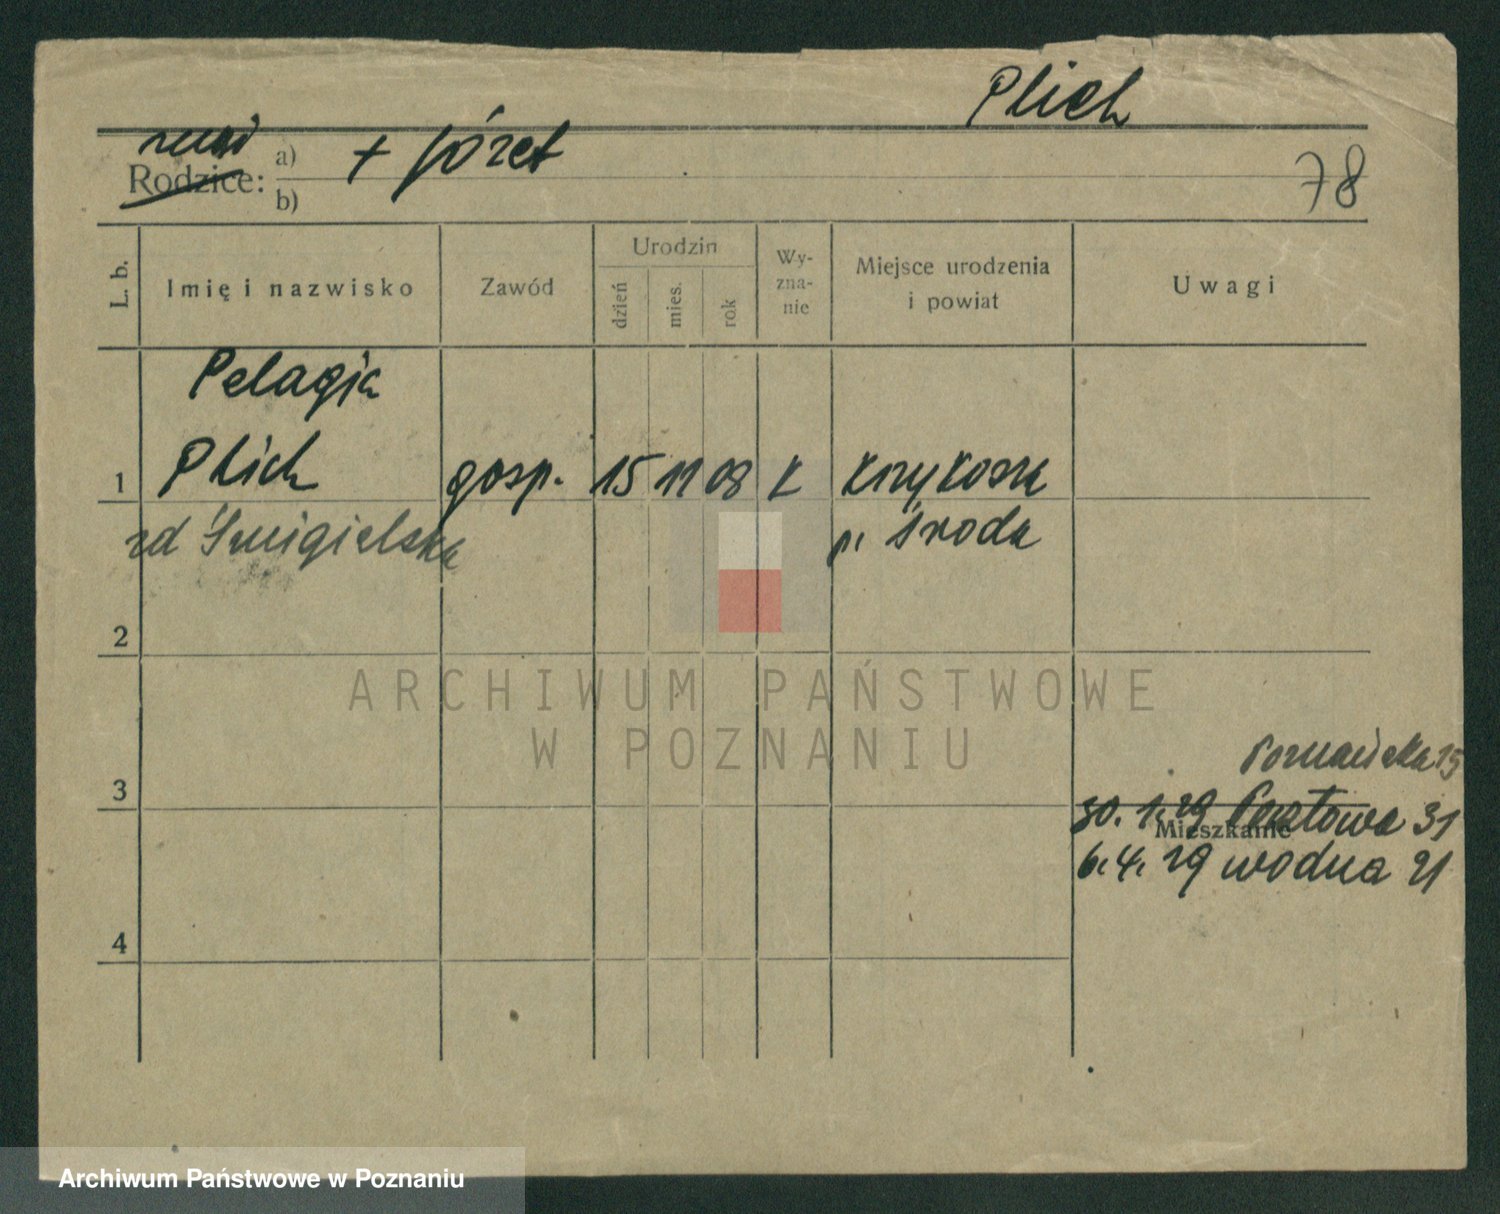 Plich
mąż
Rodzice: a) + Józef
b)
78
L. b.
Imię i nazwisko
Zawód
Urodzin
dzień
mies.
rok
Wy-
zna-
nie
Miejsce urodzenia
i powiat
Uwagi
Pelagia
1 Plich gosp. 15 11 08 k Krzykosy
zd Śmigielska p. Środa
2
ARCHIWUM PAŃSTWOWE
W POZNANIU
Poznańska 15
3
30. 1. 29 Pocztowa 31
Mieszkanie
6. 4. 29 wodna 21
4
Archiwum Państwowe w Poznaniu